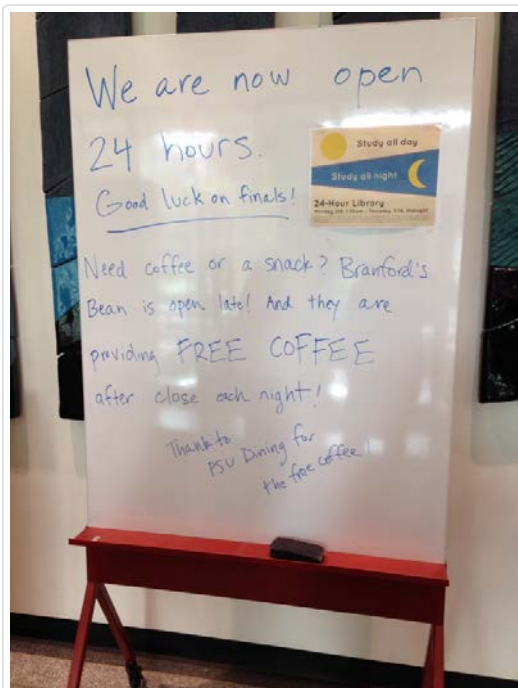 We are now open
24 hours.
Good luck on finals!
Study all day
Study all night
24-Hour Library
Need coffee or a snack? Branford's
Bean is open late! And they are
providing FREE COFFEE
after close each night!
Thanks to
PSU Dining for
the free coffee!